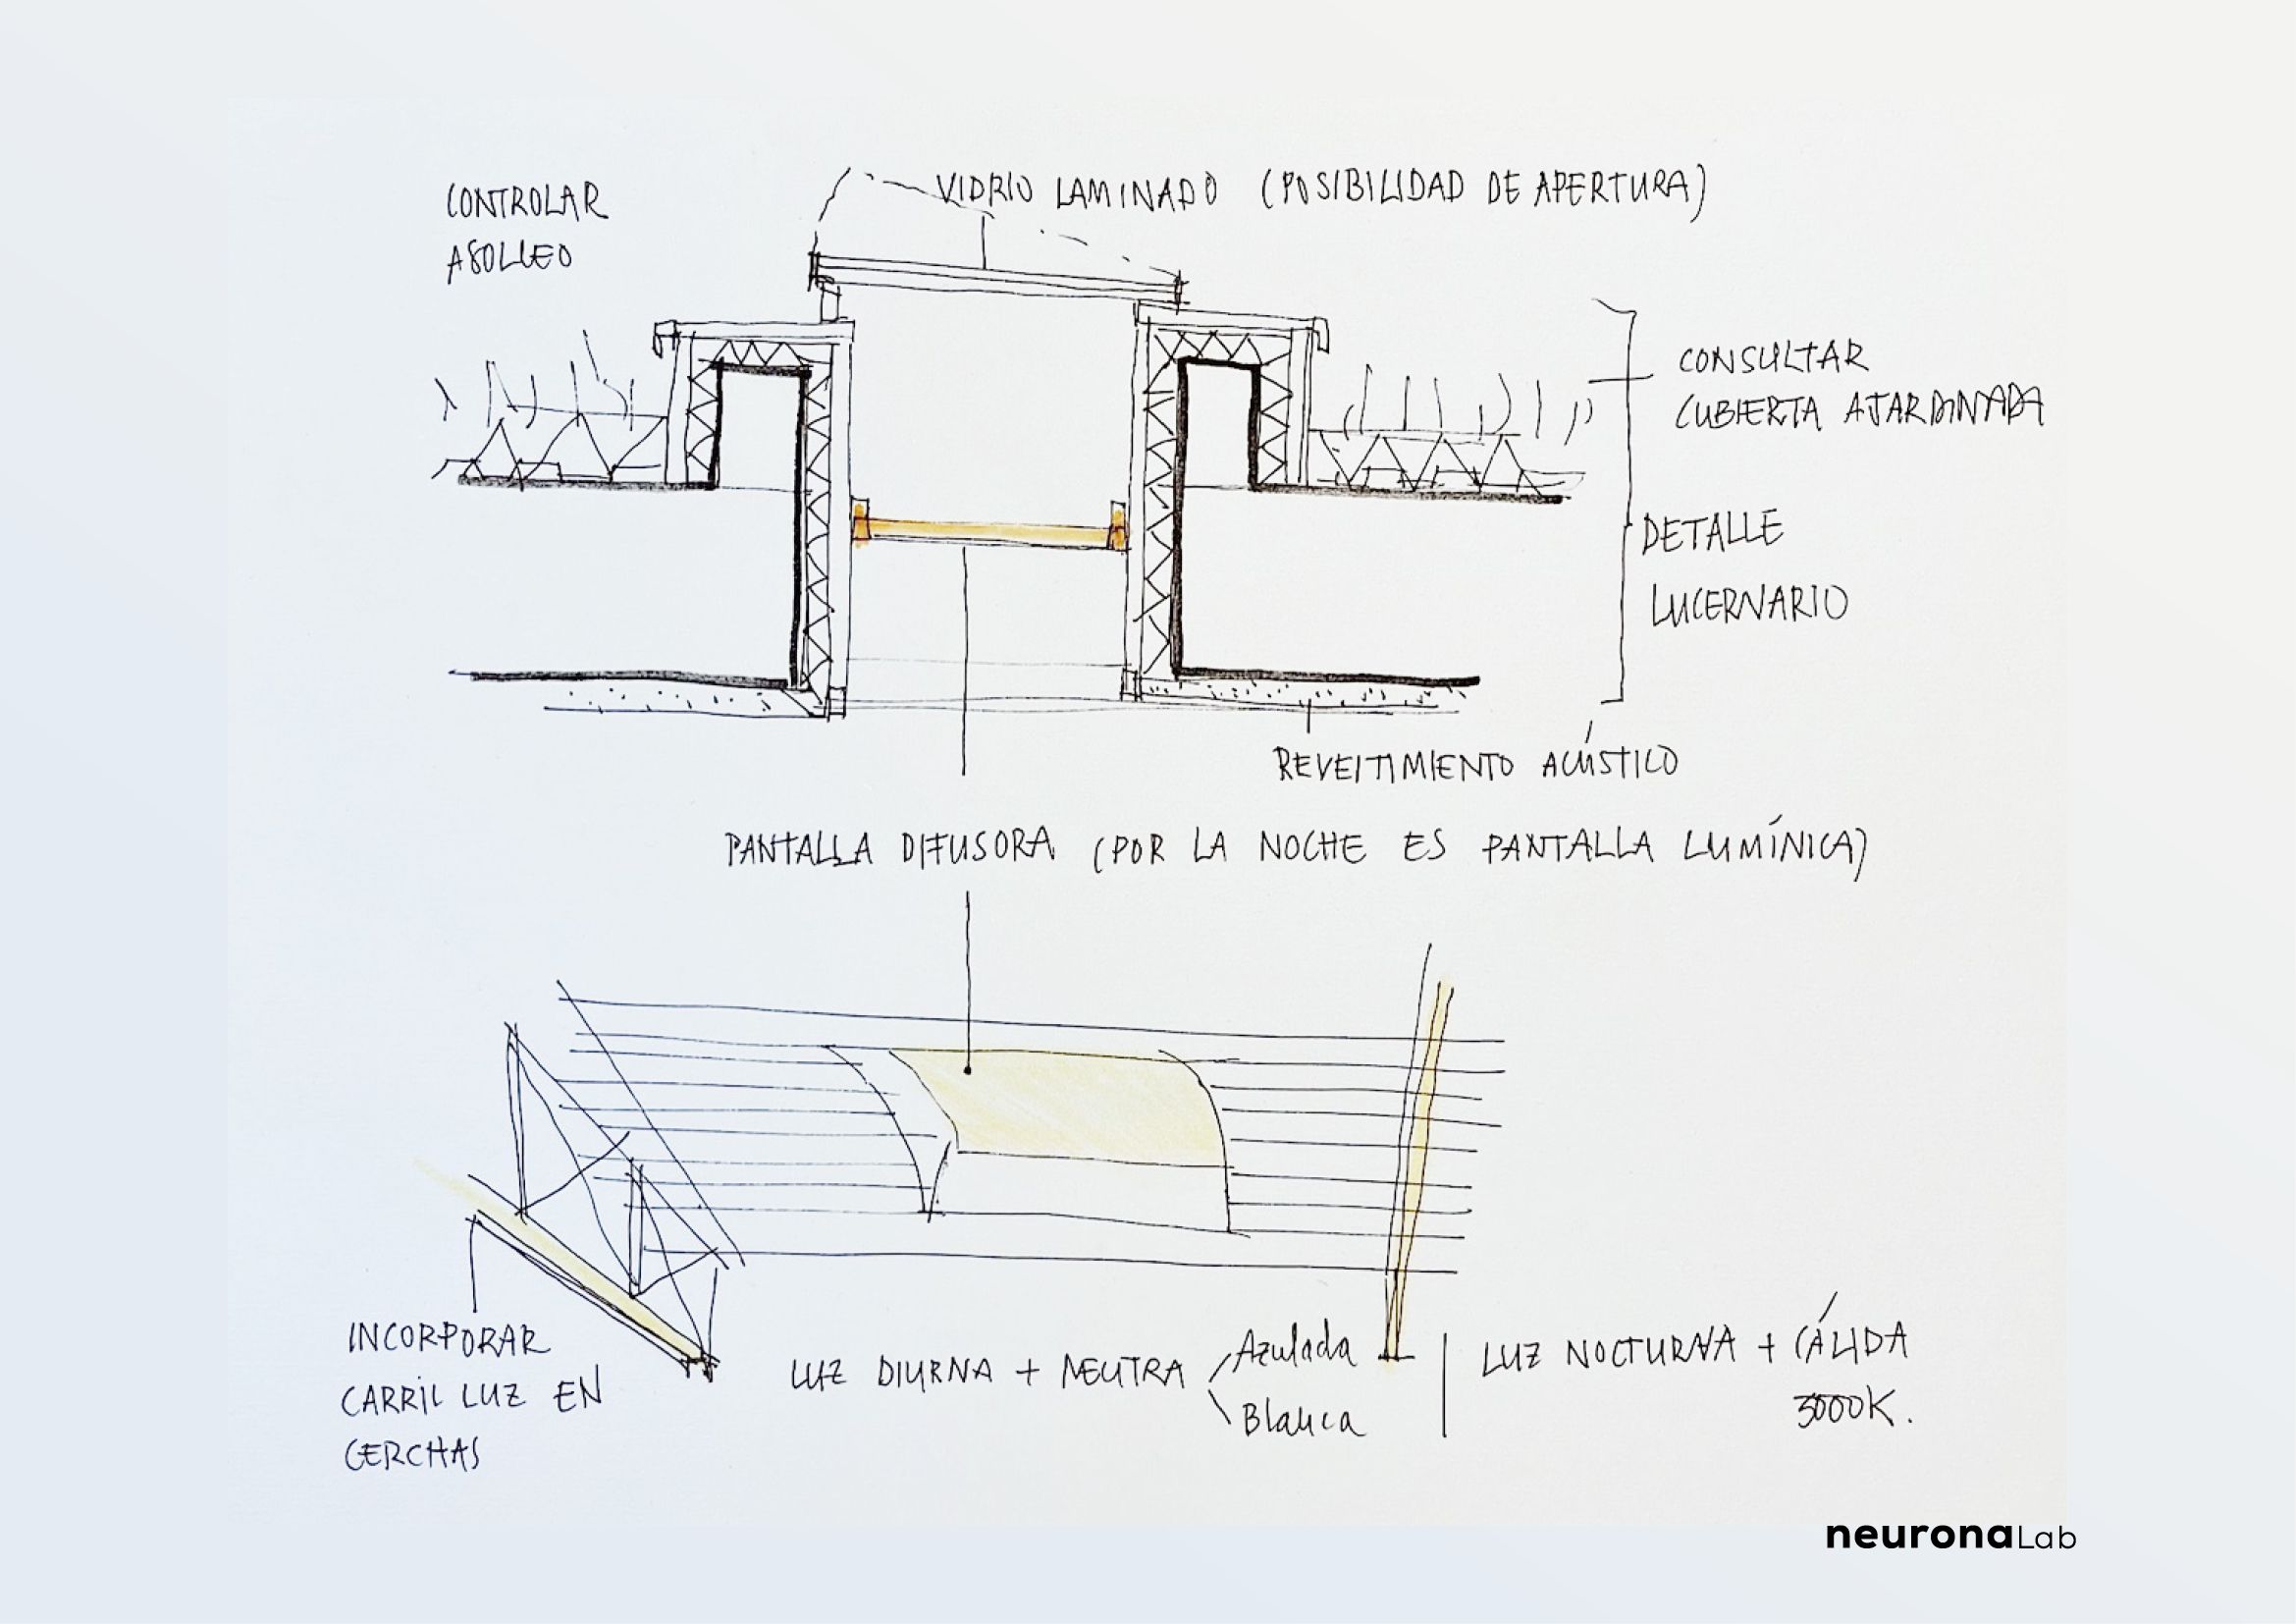 CONTROLAR
ASOLLEO
VIDRIO LAMINADO (POSIBILIDAD DE APERTURA)
CONSULTAR
CUBIERTA AJARDINADA
DETALLE
LUCERNARIO
REVESTIMIENTO ACÚSTICO
PANTALLA DIFUSORA (POR LA NOCHE ES PANTALLA LUMÍNICA)
INCORPORAR
CARRIL LUZ EN
CERCHAS
LUZ DIURNA + NEUTRA
Azulada
Blanca
LUZ NOCTURNA + CÁLIDA
3000K.
neuronaLab